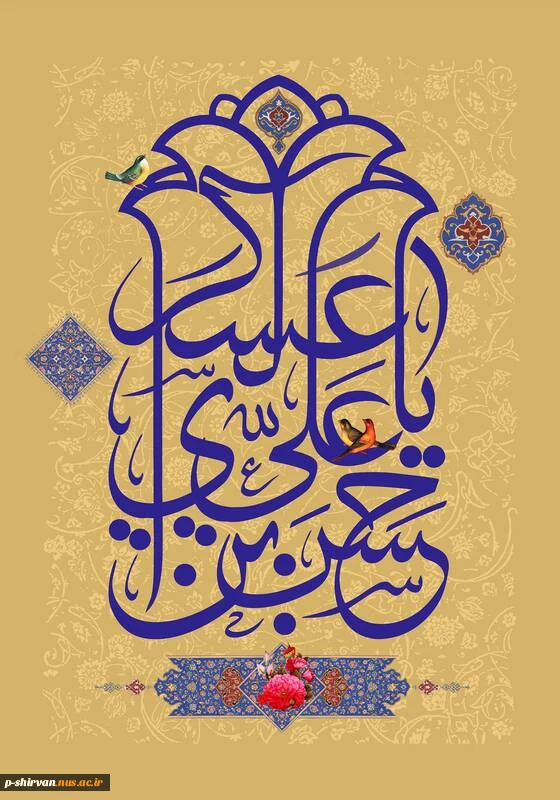 یا حسن بن علي العسكري
p-shirvan.nus.ac.ir